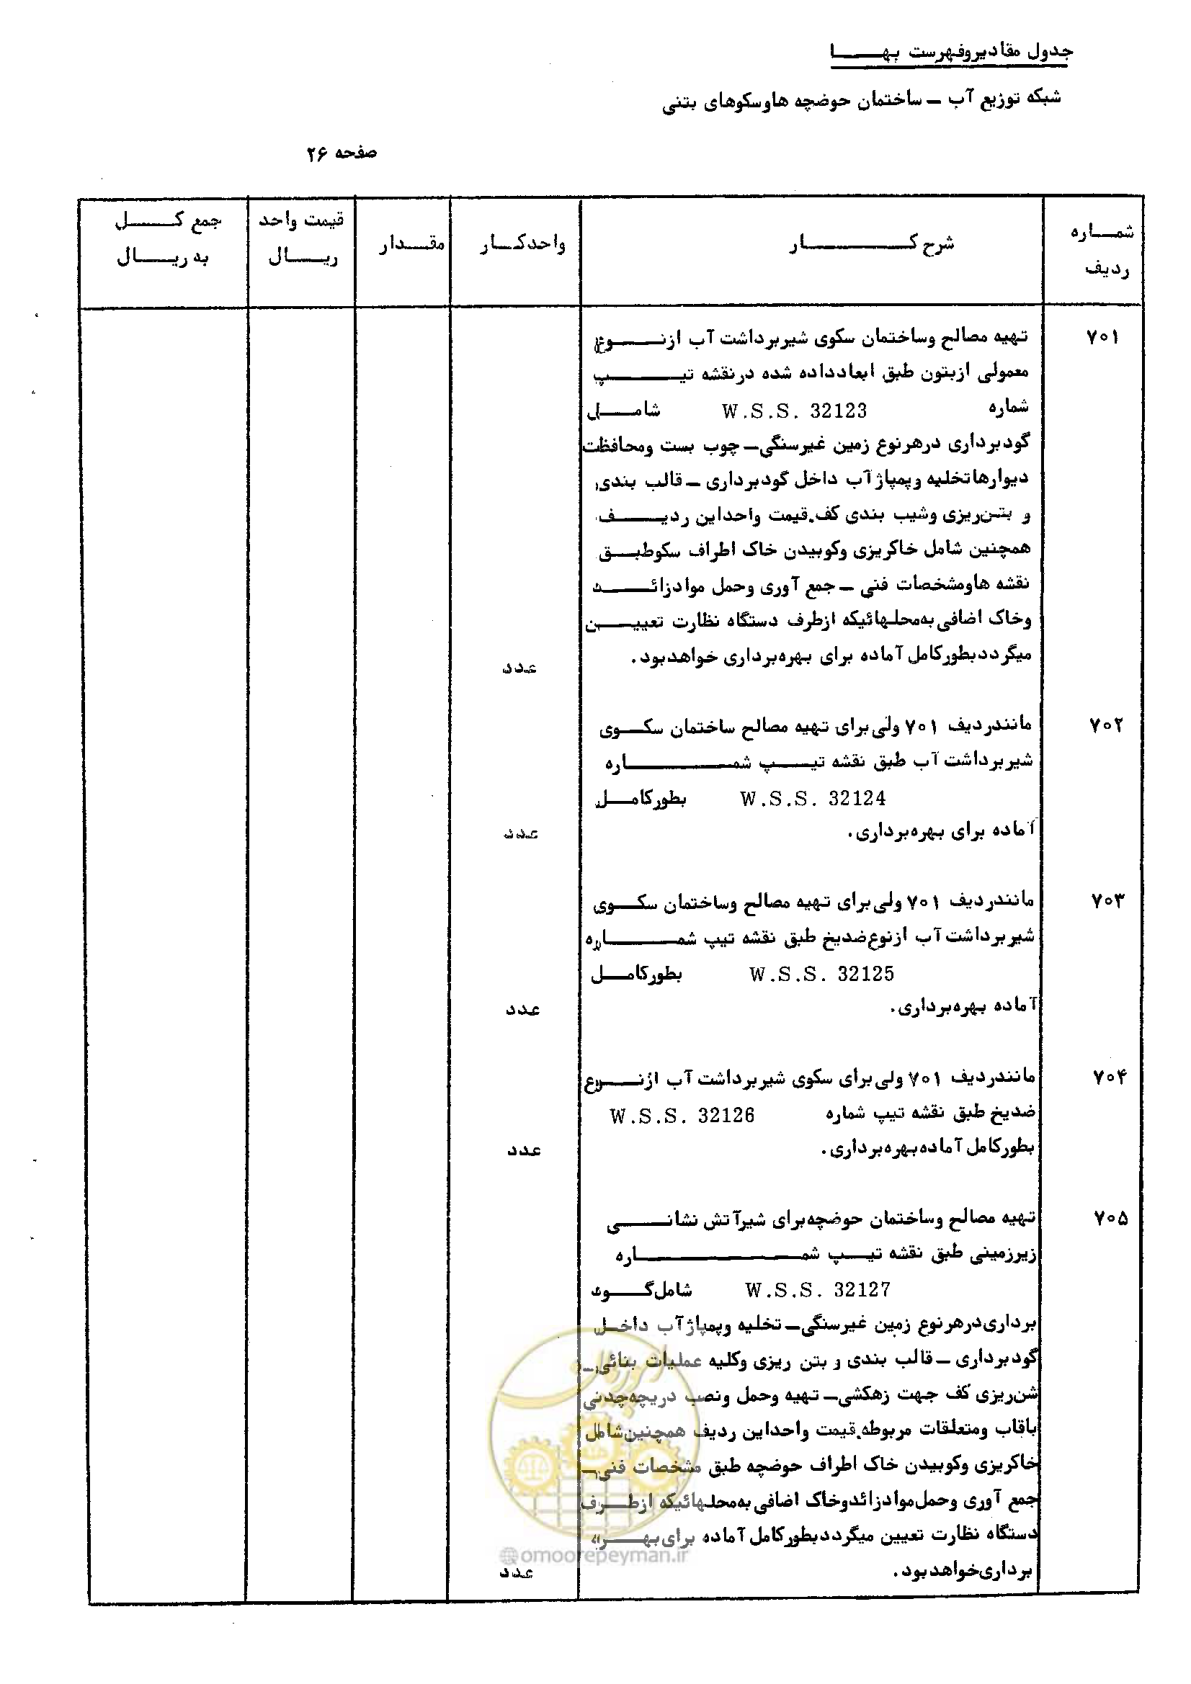 جدول مقادیر وفهرست بهــا
شبکه توزیع آب ــ ساختمان حوضچه ها وسکوهای بتنی
صفحه ۲۶
شمــاره ردیف
شرح کــــــــار
واحدکــار
مقــدار
قیمت واحد ریــــال
جمع کــــل به ریــــال
۷۰۱
تهیه مصالح وساختمان سکوی شیربرداشت آب ازنــــوع
معمولی ازبتون طبق ابعادداده شده درنقشه تیــــــپ
شماره W.S.S. 32123 شامــل
گودبرداری درهرنوع زمین غیرسنگی ــ چوب بست ومحافظت
دیوارهاتخلیه وپمپاژ آب داخل گودبرداری ــ قالب بندی
و بتن‌ریزی وشیب بندی کف.قیمت واحداین ردیــــف
همچنین شامل خاکریزی وکوبیدن خاک اطراف سکوطبــق
نقشه هاومشخصات فنی ــ جمع آوری وحمل موادزائــــد
وخاک اضافی به‌محلهائیکه ازطرف دستگاه نظارت تعییــن
میگرددبطورکامل آماده برای بهره‌برداری خواهدبود.
عدد
۷۰۲
مانندردیف ۷۰۱ ولی برای تهیه مصالح ساختمان سکــوی
شیربرداشت آب طبق نقشه تیــــپ شمــــــــاره
W.S.S. 32124 بطورکامــل
آماده برای بهره‌برداری.
عدد
۷۰۳
مانندردیف ۷۰۱ ولی برای تهیه مصالح وساختمان سکــوی
شیربرداشت آب ازنوع ضدیخ طبق نقشه تیپ شمــــــاره
W.S.S. 32125 بطورکامــل
آماده بهره‌برداری.
عدد
۷۰۴
مانندردیف ۷۰۱ ولی برای سکوی شیربرداشت آب ازنــــوع
ضدیخ طبق نقشه تیپ شماره W.S.S. 32126
بطورکامل آماده بهره‌برداری.
عدد
۷۰۵
تهیه مصالح وساختمان حوضچه برای شیرآتش نشانــــی
زیرزمینی طبق نقشه تیــــپ شمــــــــــــاره
W.S.S. 32127 شامل گــــود
برداری درهرنوع زمین غیرسنگی ــ تخلیه وپمپاژ آب داخــل
گودبرداری ــ قالب بندی و بتن ریزی وکلیه عملیات بنائی ــ
شن‌ریزی کف جهت زهکشی ــ تهیه وحمل ونصب دریچه‌چدنی
باقاب ومتعلقات مربوطه.قیمت واحداین ردیف همچنین شامل
خاکریزی وکوبیدن خاک اطراف حوضچه طبق مشخصات فنی ــ
جمع آوری وحمل موادزائدوخاک اضافی به‌محلهائیکه ازطــرف
دستگاه نظارت تعیین میگرددبطورکامل آماده برای بهــره
برداری خواهدبود.
عدد
امور پیمان
@omoorepeyman.ir